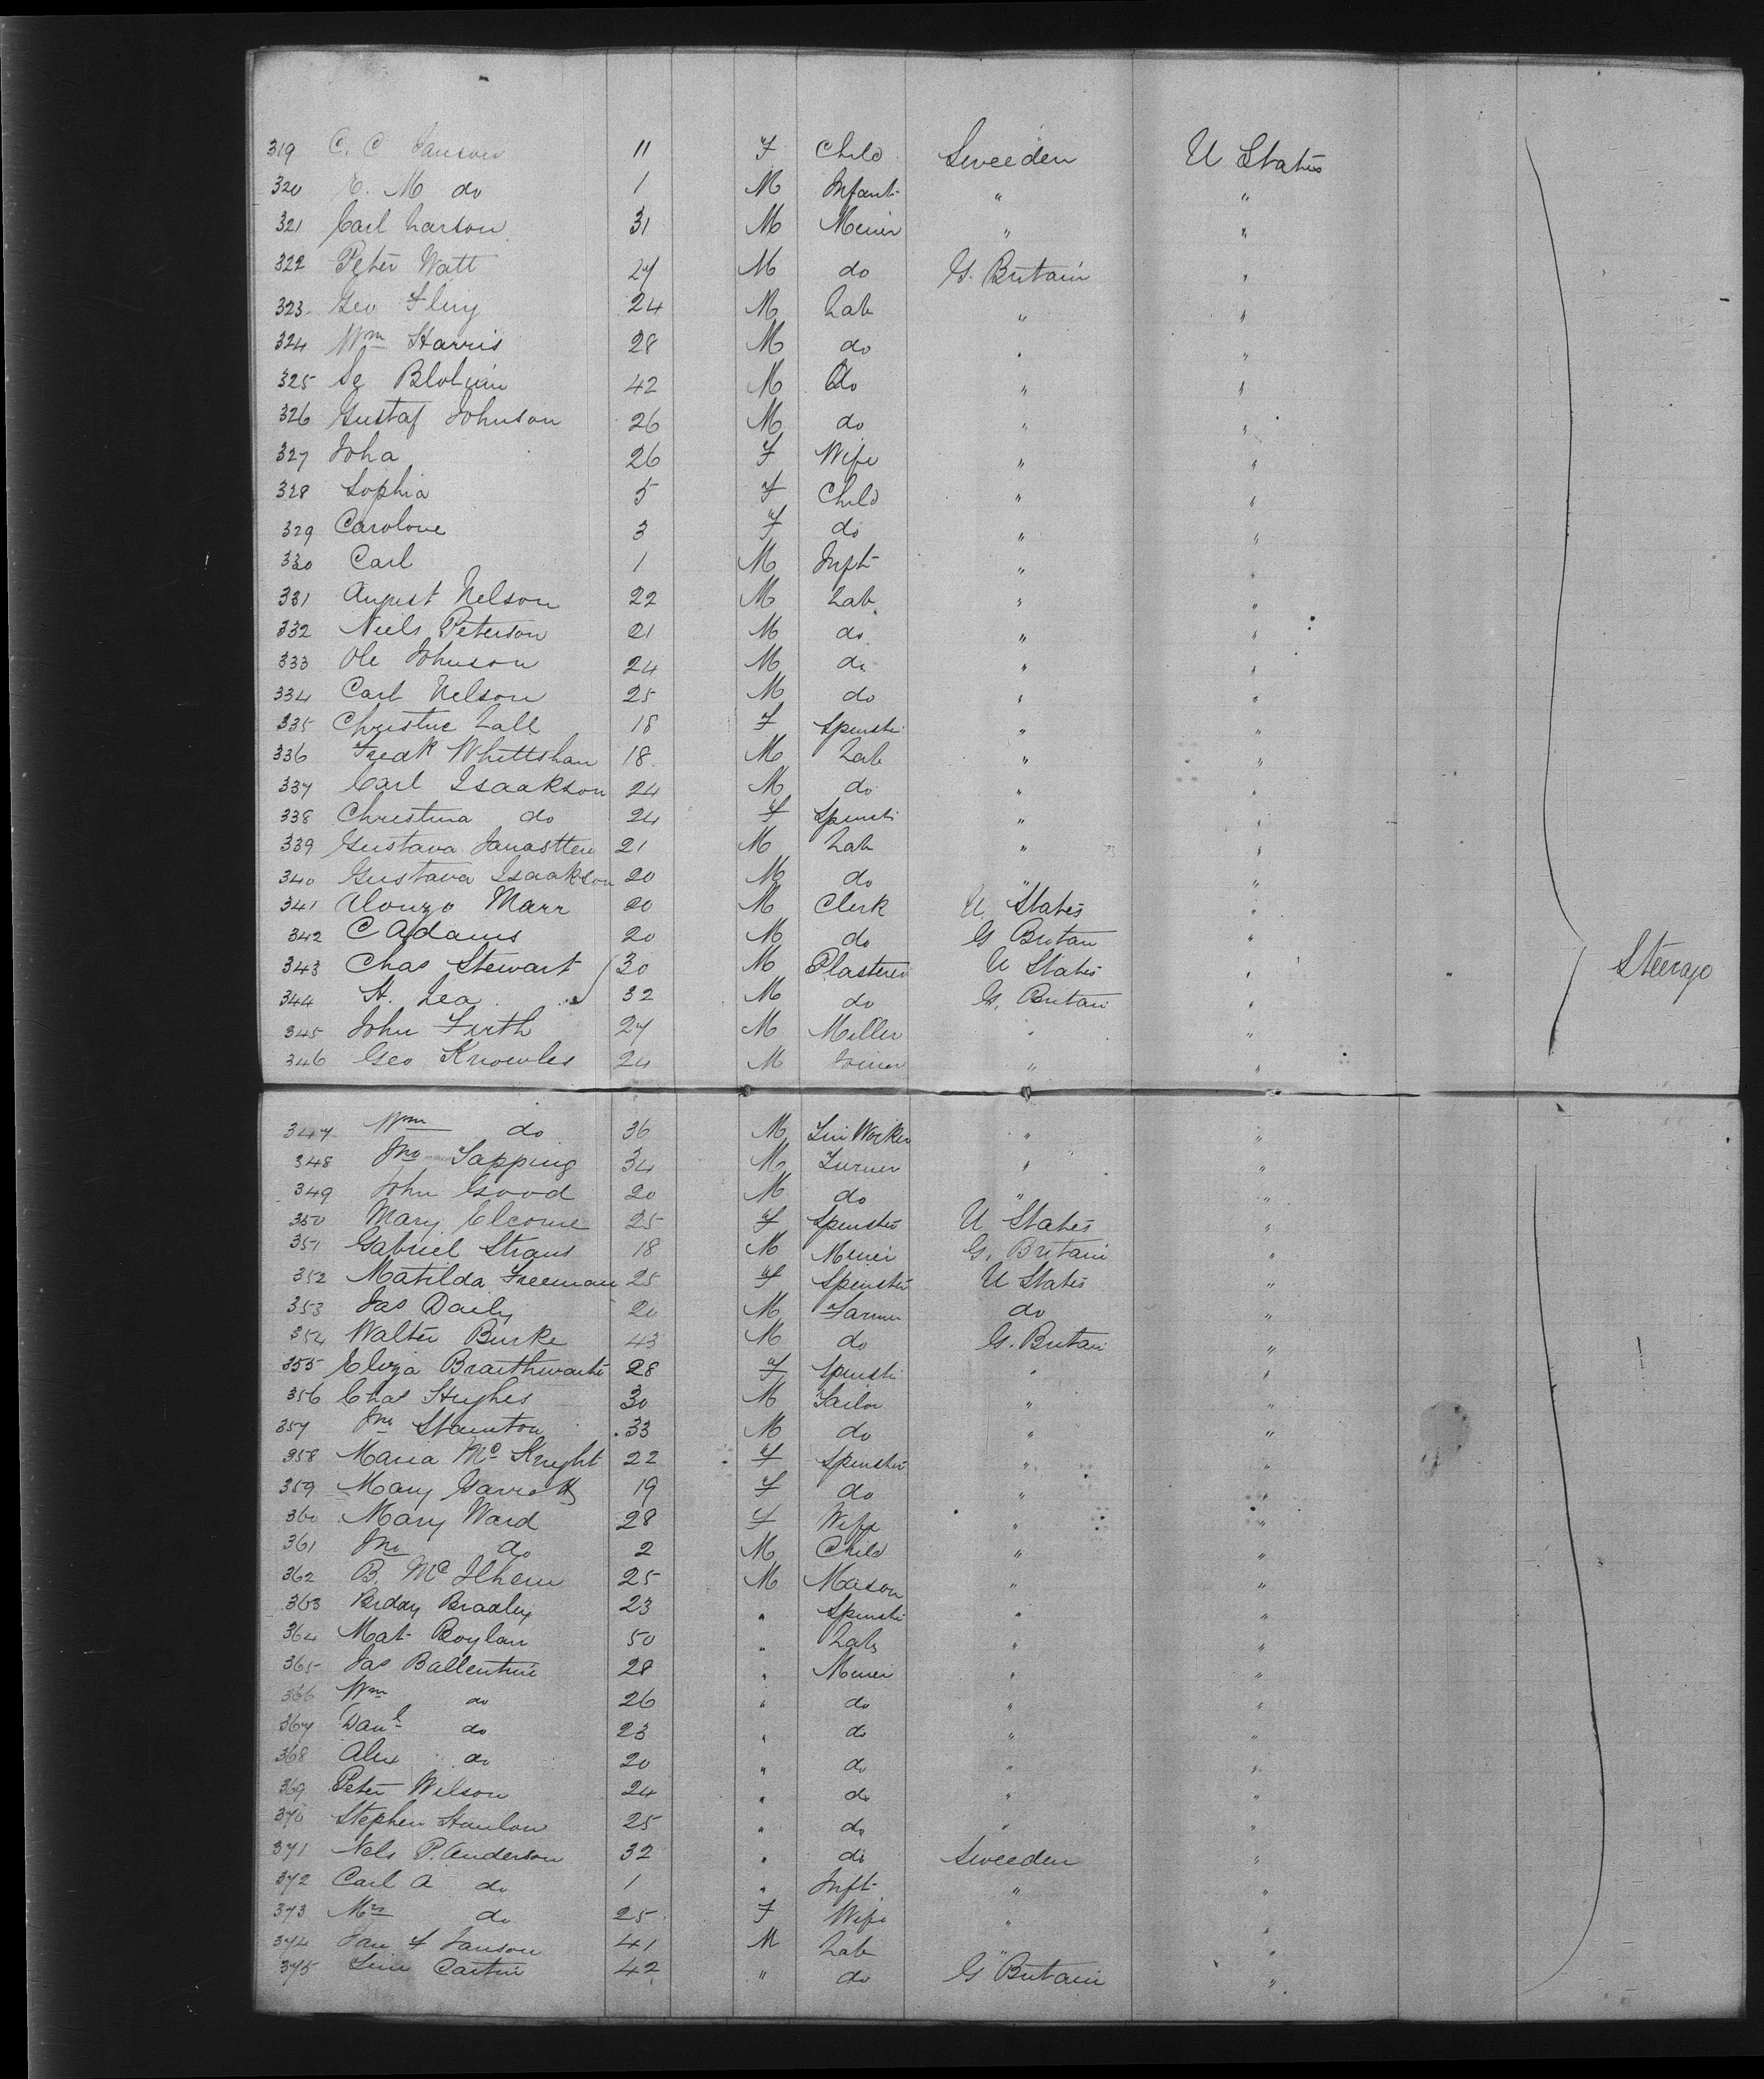 319 C. C Janson 11 F Child Sweeden U States
320 E. M do 1 M Infant " "
321 Carl Larson 31 M Miner " "
322 Peter Watt 27 M do G. Britain "
323 Geo Fling 24 M Lab " "
324 Wm Harris 28 M do " "
325 42 M do " "
326 Gustaf Johnson 26 M do " "
327 Joha 26 F Wife " "
328 Sophia 5 F Child " "
329 Carolove 3 F do " "
330 Carl 1 M Inft " "
331 August Nelson 22 M Lab " "
332 Niels Peterson 21 M do " "
333 Ole Johnson 24 M do " "
334 Carl Nelson 25 M do " "
335 Christne Lall 18 F Spinster " "
336 Fredk Whittshan 18 M Lab " "
337 Carl Isaakson 24 M do " "
338 Christina do 24 F Spinst " "
339 Gustava 21 M Lab " "
340 Gustava Isaakson 20 M do " "
341 Alonzo Marr 20 M Clerk U States "
342 C Adams 20 M do G Britan "
343 Chas Stewart 30 M Plasterer U States " Steerage
344 H. Lea 32 M do G. Britain "
345 John Firth 27 M Miller " "
346 Geo Knowles 24 M Joiner " "
347 Wm do 36 M Tin Worker " "
348 Jno Tapping 34 M Turner " "
349 John Good 20 M do " "
350 Mary Elcome 25 F Spinster U States "
351 Gabriel Straus 18 M Miner G. Britain "
352 Matilda Freeman 25 F Spinster U States "
353 Jas Daily 20 M Farmer do "
354 Walter Burke 43 M do G. Britain "
355 Eliza Braithwaite 28 F Spinster " "
356 Chas Hughes 30 M Tailor " "
357 Jno Staunton 33 M do " "
358 Maria Mc Knight 22 F Spinster " "
359 Mary Garrett 19 F do " "
360 Mary Ward 28 F Wife " "
361 Jno do 2 M Child " "
362 B. Mc Ilhern 25 M Mason " "
363 Briday Bradley 23 " Spinster " "
364 Mat Boylan 50 " Lab " "
365 Jas Ballentine 28 " Miner " "
366 Wm do 26 " do " "
367 Danl do 23 " do " "
368 Alex do 20 " do " "
369 Peter Wilson 24 " do " "
370 Stephen Hanlon 25 " do " "
371 Nels P. Anderson 32 " do Sweeden "
372 Carl A do 1 " Inft " "
373 Mrs do 25 F Wife " "
374 Jan F Janson 41 M Lab " "
375 42 " do G Britain "